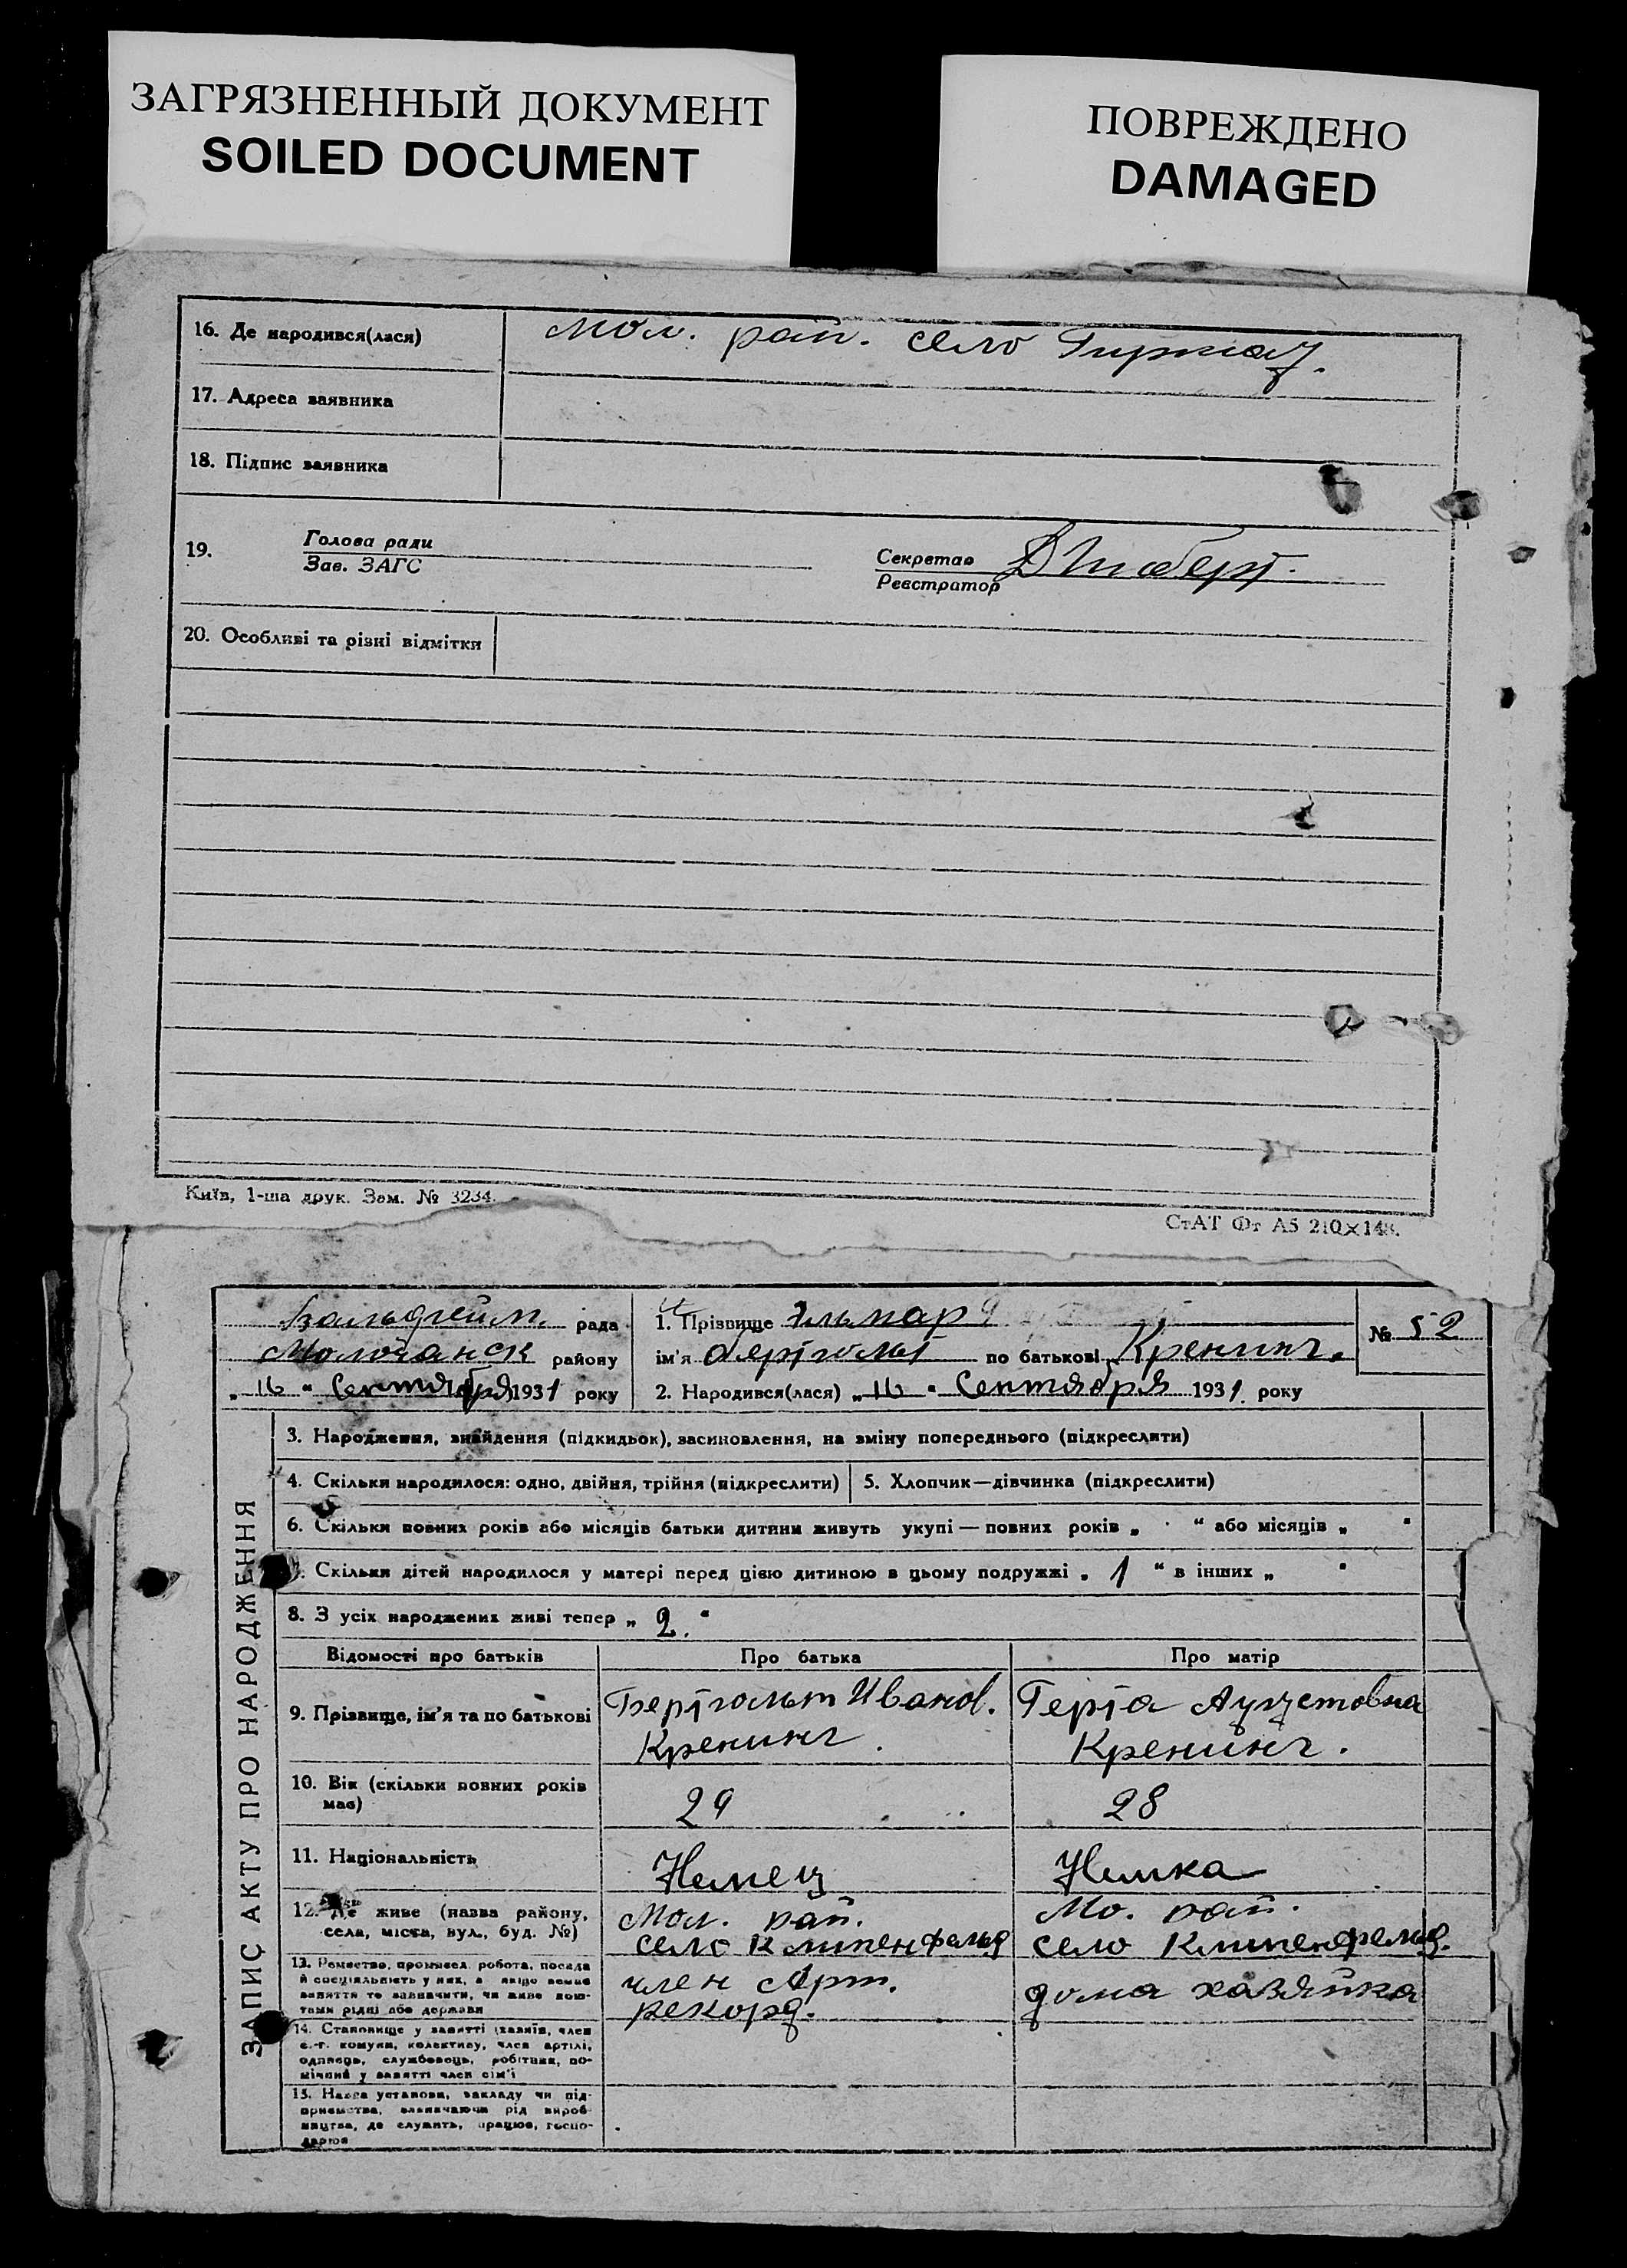 ЗАГРЯЗНЕННЫЙ ДОКУМЕНТ
SOILED DOCUMENT
ПОВРЕЖДЕНО
DAMAGED
16. Де народився(лася) Мол. рай. село
17. Адреса заявника
18. Підпис заявника
19. Голова ради
Зав. ЗАГС
Секретар
Реєстратор
20. Особливі та різні відмітки
Київ, 1-ша друк. Зам. № 3234.
СтАТ Фт А5 210×148.
ЗАПИС АКТУ ПРО НАРОДЖЕННЯ
Вальдгейм. рада
Молочанск району
„ 16 “ Сентября 1931 року
1. Прізвище Эльмар
ім'я по батькові Кренинг.
№ 52
2. Народився(лася) „ 16 “ Сентября 1931 року
3. Народження, знайдення (підкидьок), засиновлення, на зміну попереднього (підкреслити)
4. Скільки народилося: одно, двійня, трійня (підкреслити) 5. Хлопчик—дівчинка (підкреслити)
6. Скільки повних років або місяців батьки дитини живуть укупі — повних років „ “ або місяців „ “
7. Скільки дітей народилося у матері перед цією дитиною в цьому подружжі „ 1 “ в інших „ “
8. З усіх народжених живі тепер „ 2. “
Відомості про батьків Про батька Про матір
9. Прізвище, ім'я та по батькові Бертгольт Иванов. Герта Аугустовна
Кренинг. Кренинг.
10. Вік (скільки повних років
має) 29 28
11. Національність Немец Немка
12. Де живе (назва району, Мол. рай. Мо. рай.
села, міста, вул., буд. №) село Клипенфельд село Клипенфельд.
13. Ремество, промысел, робота, посада
й спеціяльність у них, а якщо немає
заняття то зазначити, чи живе кош-
тами рідні або держави
член Арт. дома хазяйка
рекорд.
14. Становище у занятті (хазяїн, член
с.-г. комуни, колективу, член артілі,
одинець, службовець, робітник, по-
мічний у занятті член сім'ї
15. Назва установи, закладу чи під-
приємства, зазначаючи рід вироб-
ництва, де служить, працює, госпо-
дарює